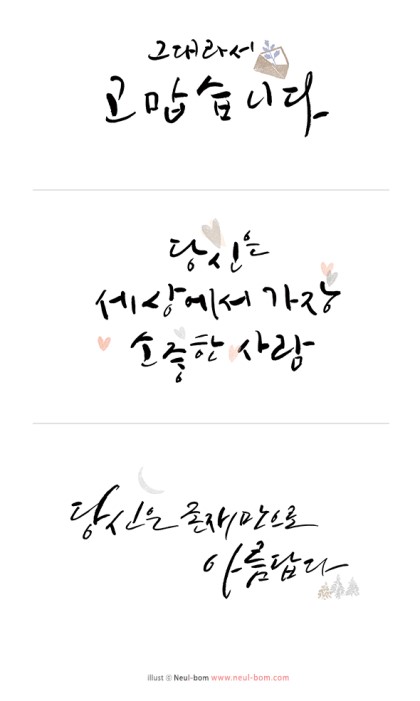 그대라서
고맙습니다
당신은
세상에서 가장
소중한 사람
당신은 존재만으로
아름답다
illust ⓒ Neul-bom www.neul-bom.com